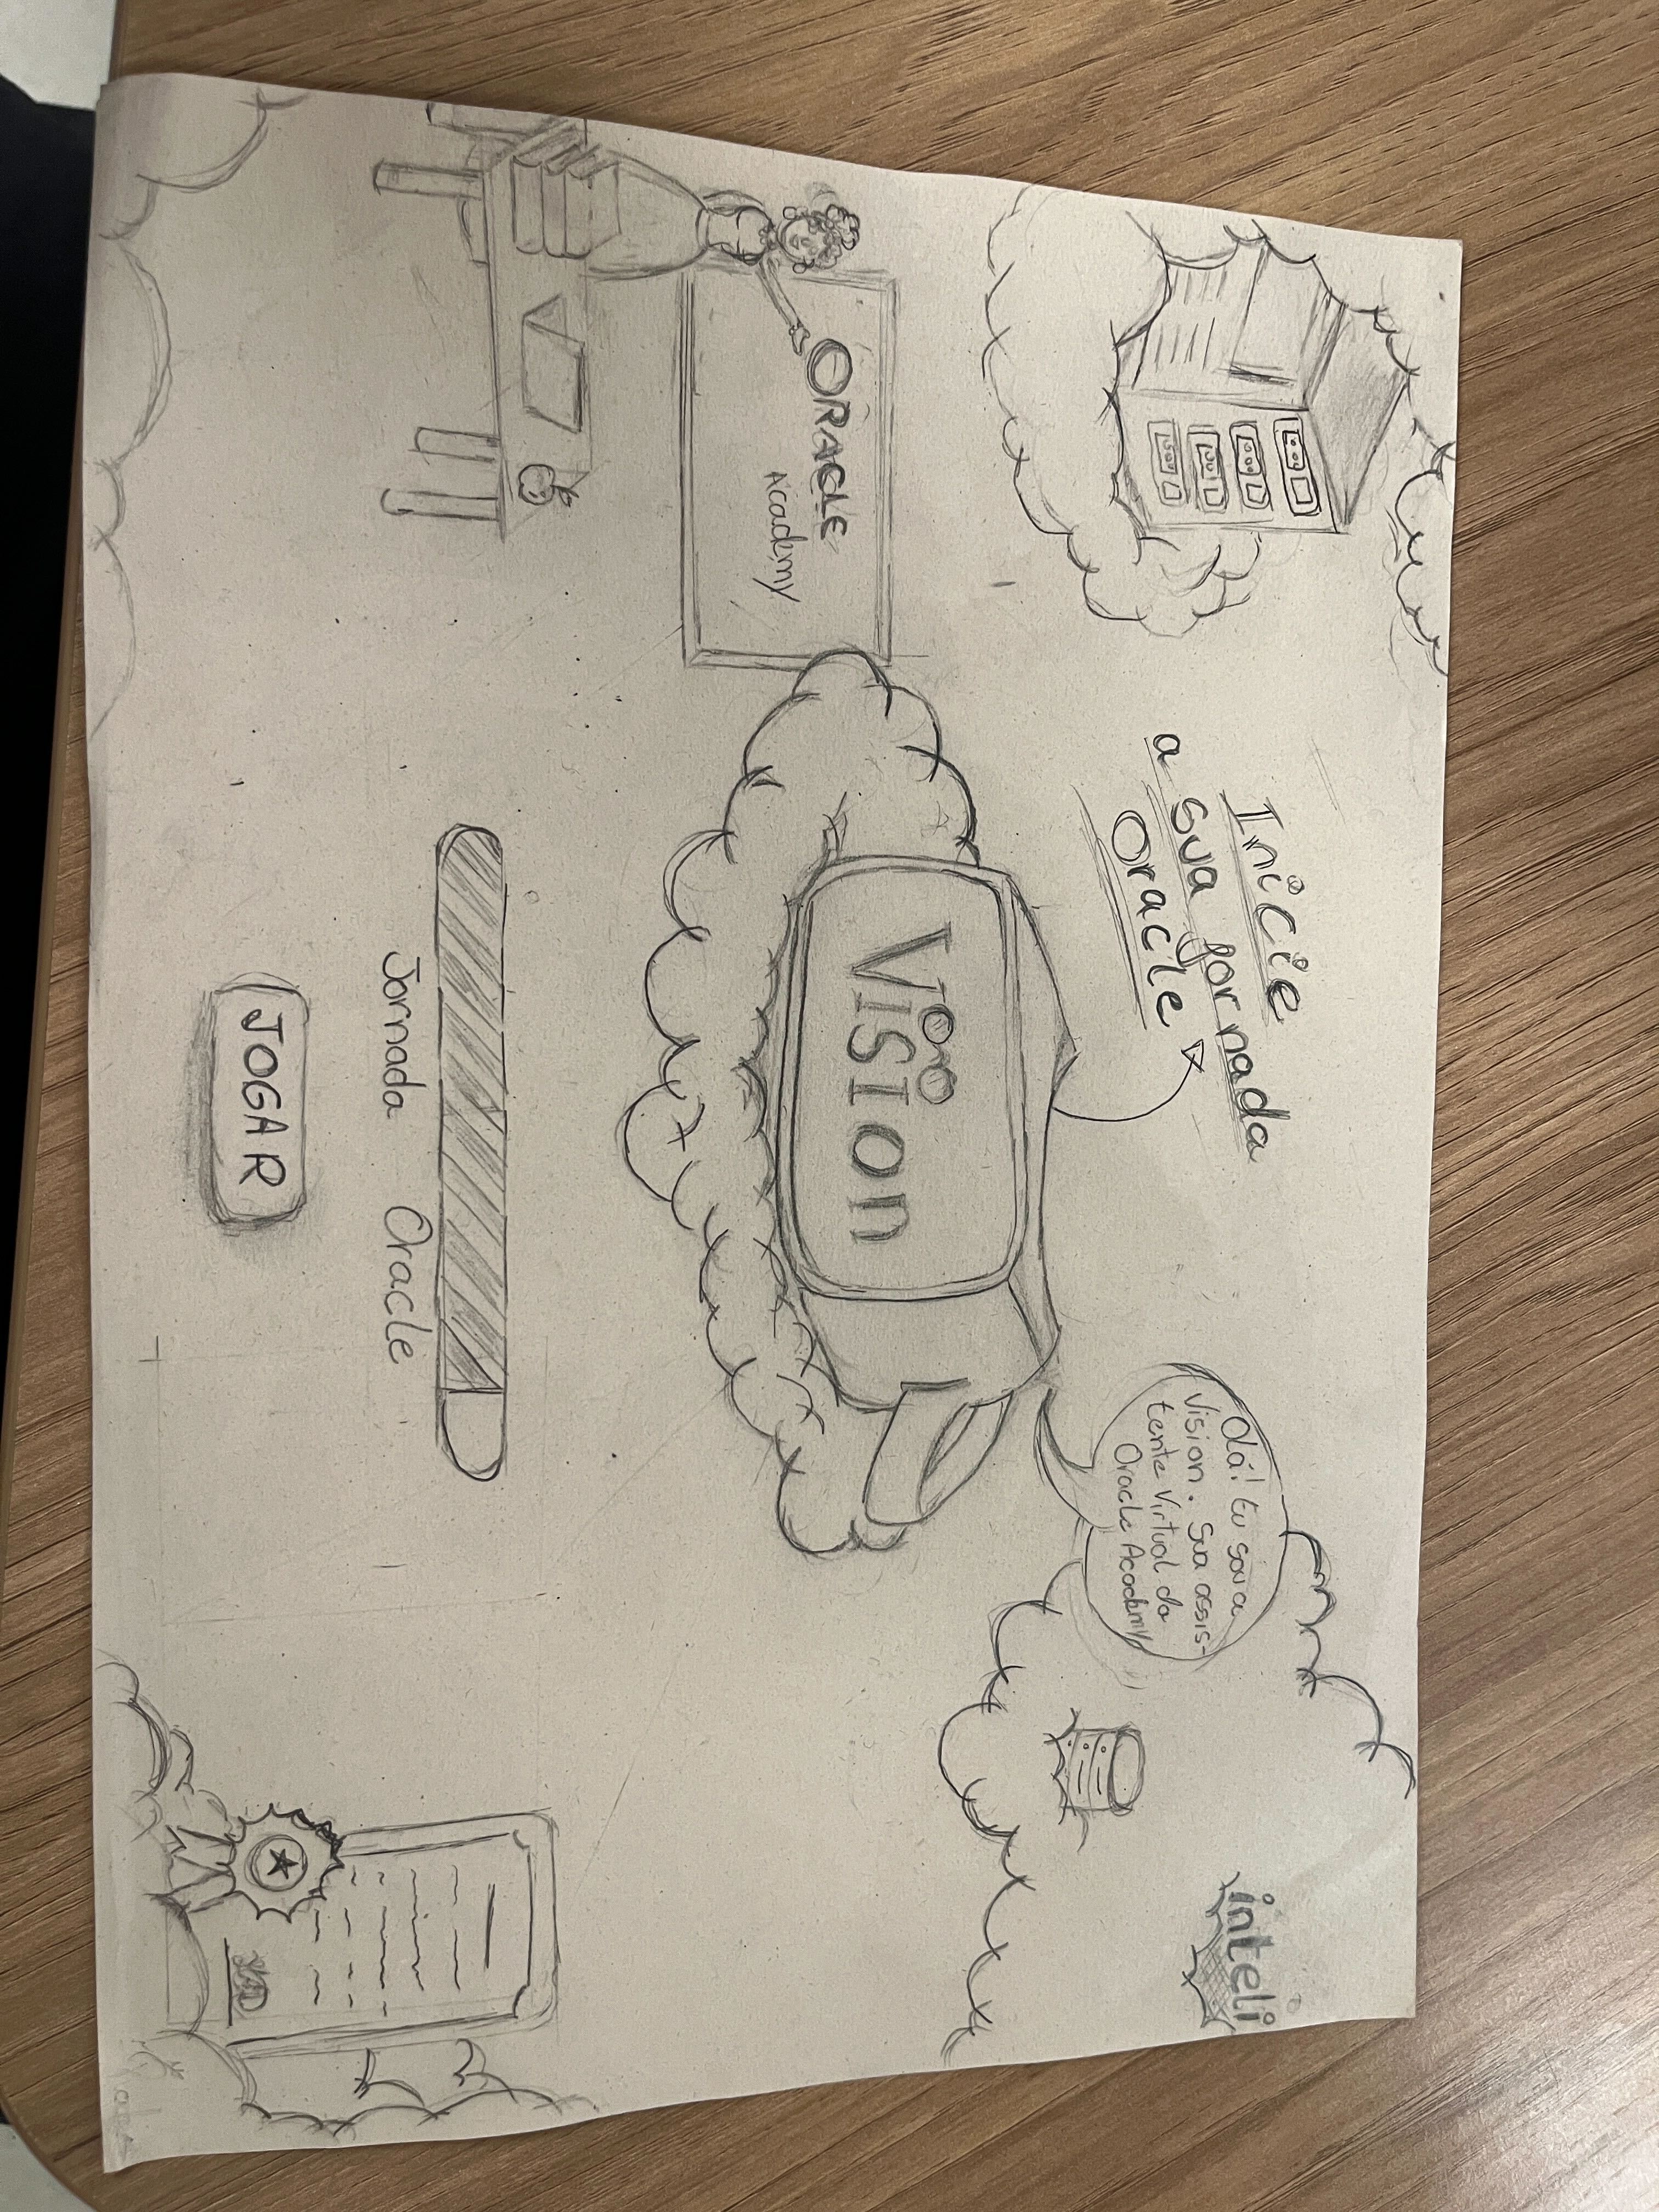 Inicie
a sua jornada
Oracle
Olá! Eu sou a
Vision. Sua assis-
tente Virtual da
Oracle Academy
inteli
Vision
ORACLE
Academy
Jornada Oracle
JOGAR